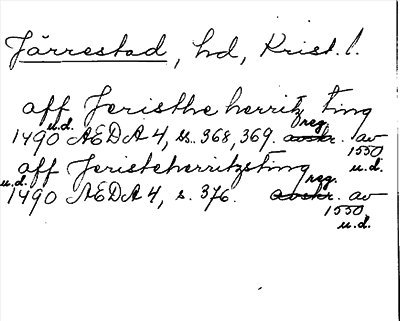 Järrestad, hd, Krist. l.
aff Jeristhe herritz ting
u.d. 1490 AEDA 4, ss. 368, 369. reg. avskr. av 1550 u.d.
aff Jeristeherritzsting
u.d. 1490 AEDA 4, s. 376. reg. avskr. av 1550 u.d.